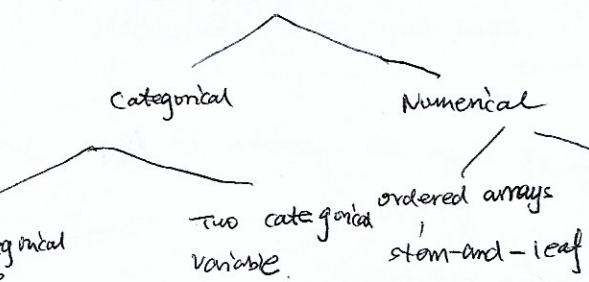 Categorical
Numerical
Two categorical
variable.
ordered arrays
stem-and-leaf